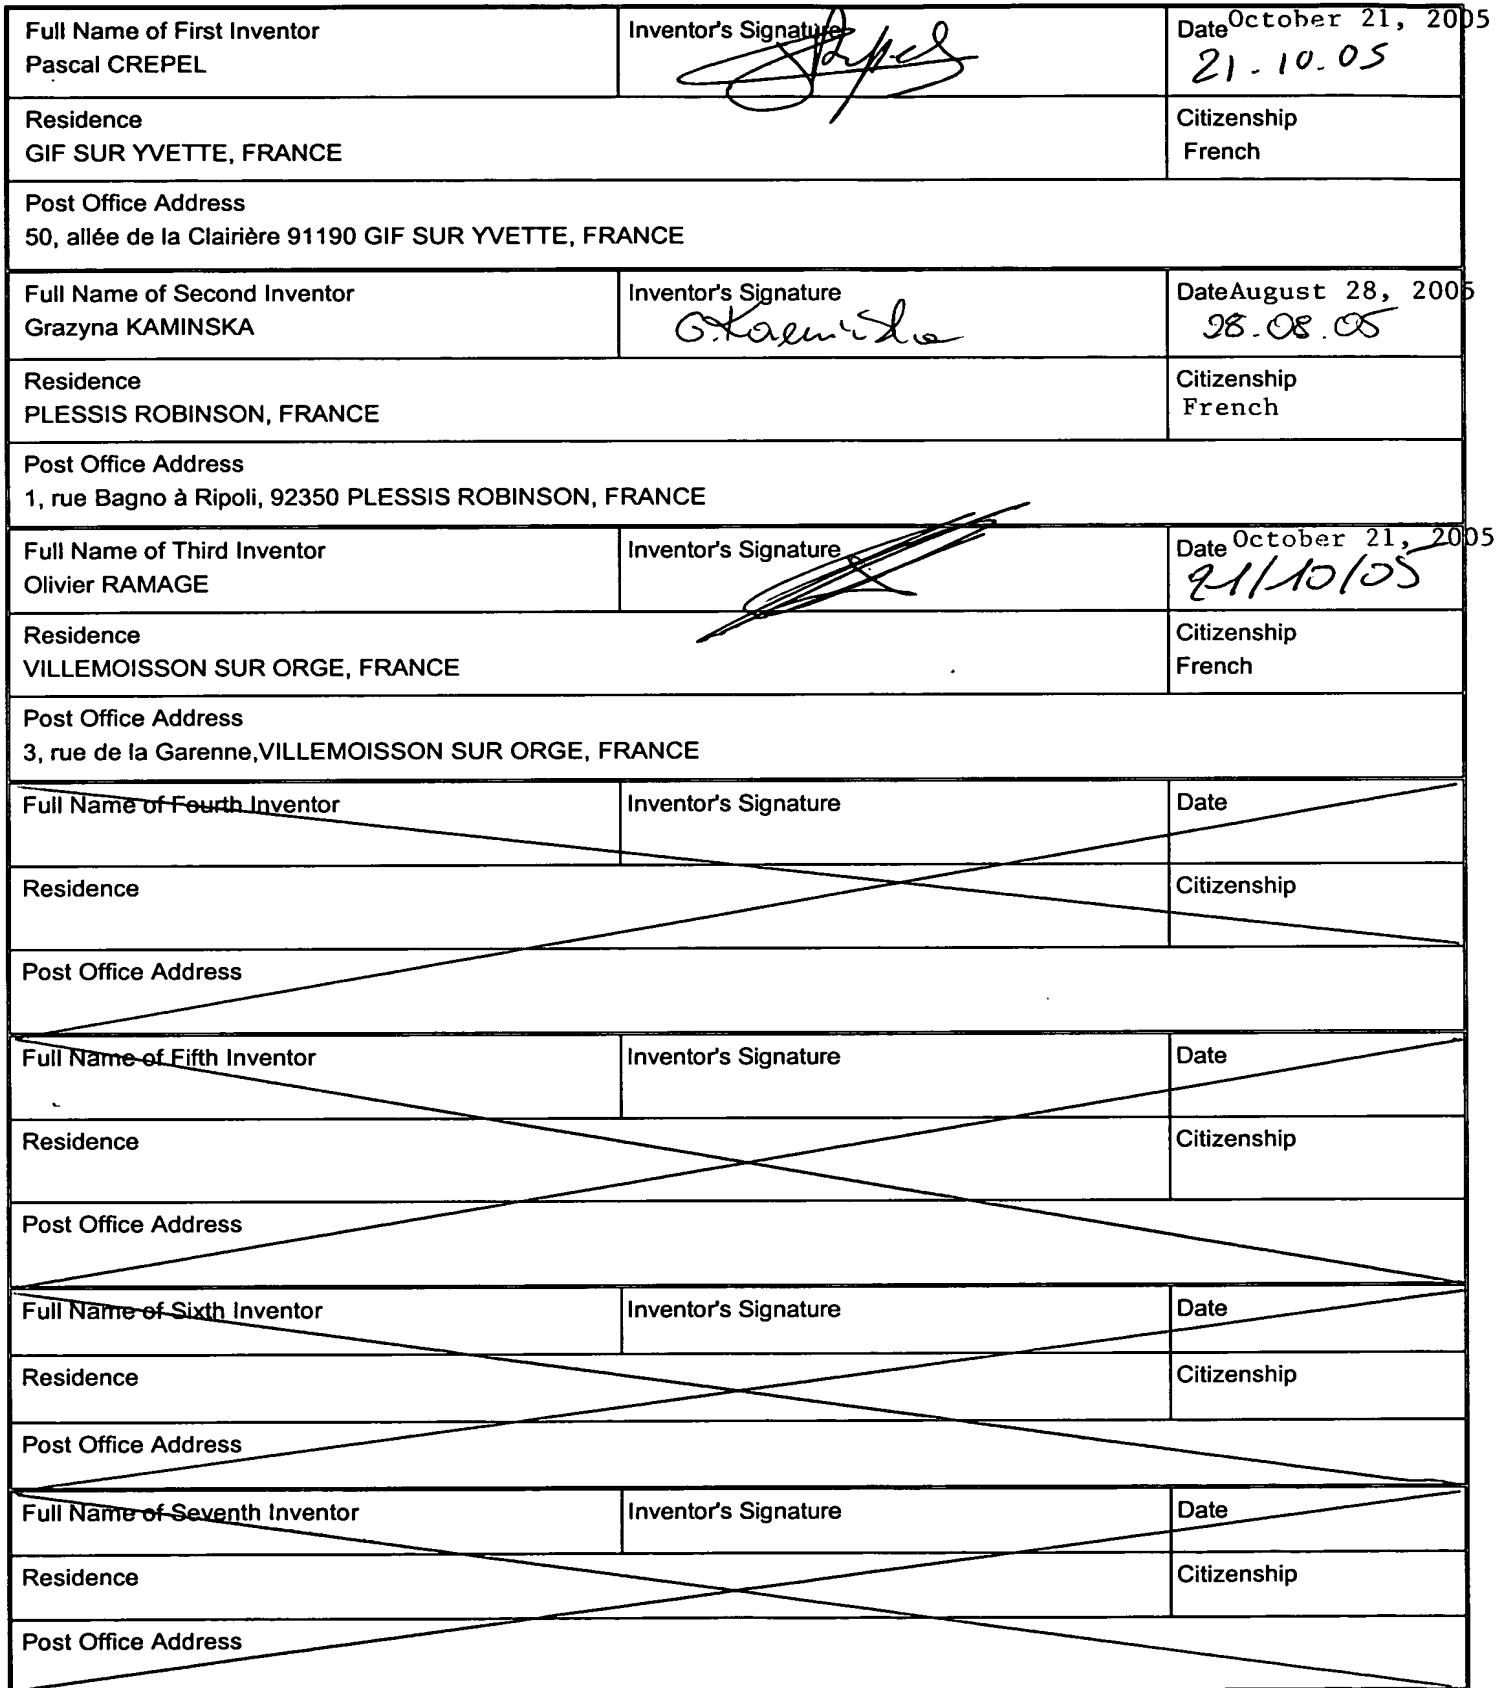 Full Name of First Inventor
Pascal CREPEL
Inventor's Signature
Date October 21, 2005
21.10.05
Residence
GIF SUR YVETTE, FRANCE
Citizenship
French
Post Office Address
50, allée de la Clairière 91190 GIF SUR YVETTE, FRANCE
Full Name of Second Inventor
Grazyna KAMINSKA
Inventor's Signature
G.Kaminska
Date August 28, 2005
28.08.05
Residence
PLESSIS ROBINSON, FRANCE
Citizenship
French
Post Office Address
1, rue Bagno à Ripoli, 92350 PLESSIS ROBINSON, FRANCE
Full Name of Third Inventor
Olivier RAMAGE
Inventor's Signature
Date October 21, 2005
21/10/05
Residence
VILLEMOISSON SUR ORGE, FRANCE
Citizenship
French
Post Office Address
3, rue de la Garenne,VILLEMOISSON SUR ORGE, FRANCE
Full Name of Fourth Inventor
Inventor's Signature
Date
Residence
Citizenship
Post Office Address
Full Name of Fifth Inventor
Inventor's Signature
Date
Residence
Citizenship
Post Office Address
Full Name of Sixth Inventor
Inventor's Signature
Date
Residence
Citizenship
Post Office Address
Full Name of Seventh Inventor
Inventor's Signature
Date
Residence
Citizenship
Post Office Address